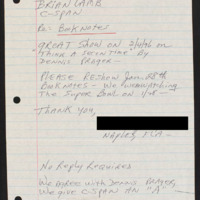 BRIAN LAMB
C-SPAN
Re: BOOKNOTES
GREAT SHOW ON
"THINK A SECOND TIME" BY
DENNIS PRAGER -
PLEASE RESHOW JAN. 28th
BOOKNOTES - WE WERE WATCHING
THE SUPER BOWL ON 1/28 -
THANK YOU,
NAPLES, FLA -
No Reply Required
WE AGREE WITH DENNIS PRAGER,
WE GIVE C-SPAN AN "A" -